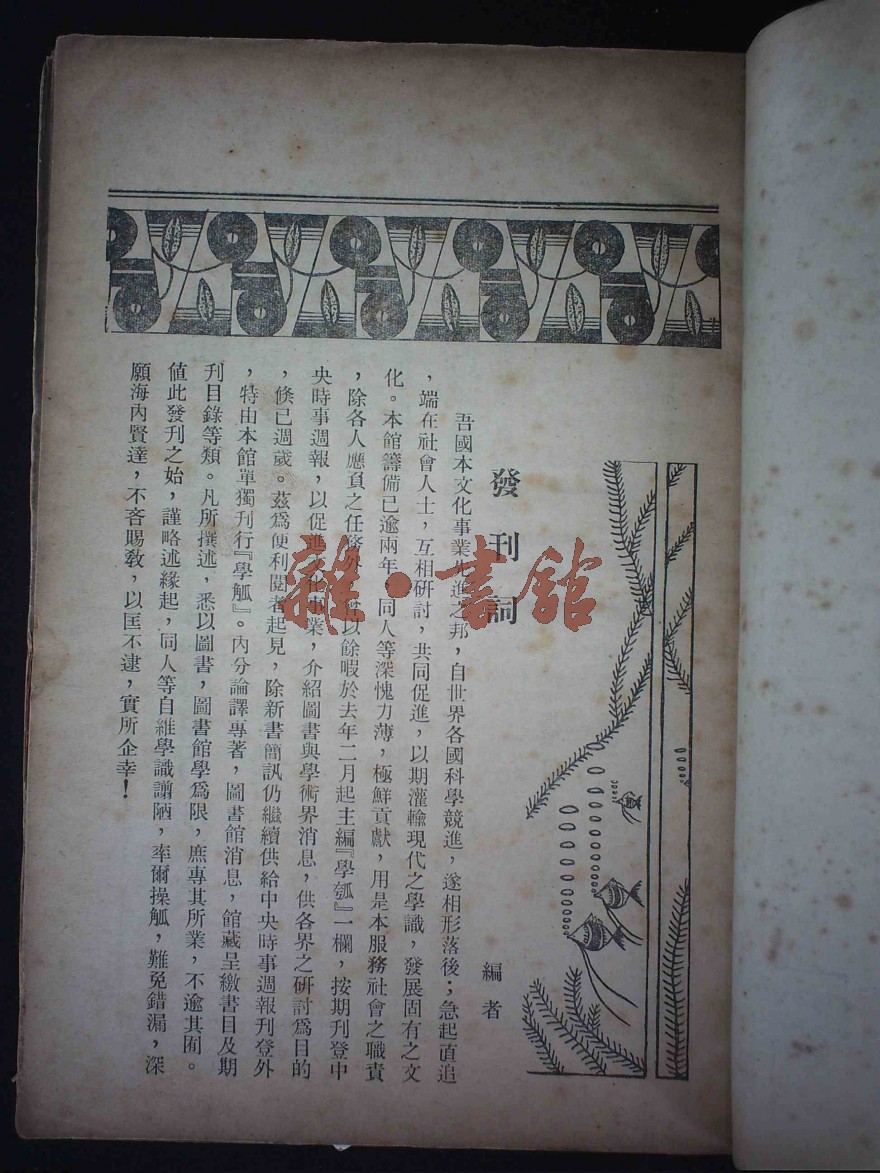 發刊詞
編者
吾國本文化事業先進之邦，自世界各國科學競進，遂相形落後；急起直追
，端在社會人士，互相研討，共同促進，以期灌輸現代之學識，發展固有之文
化。本館籌備已逾兩年，同人等深愧力薄，極鮮貢獻，用是本服務社會之職責
，除各人應負之任務外，以餘暇於去年二月起主編『學瓠』一欄，按期刊登中
央時事週報，以促進文化事業，介紹圖書與學術界消息，供各界之研討爲目的
，倏已週歲。茲爲便利閱者起見，除新書簡訊仍繼續供給中央時事週報刊登外
，特由本館單獨刊行『學觚』。內分論譯專著，圖書館消息，館藏呈繳書目及期
刊目錄等類。凡所撰述，悉以圖書，圖書館學爲限，庶專其所業，不逾其囿。
値此發刊之始，謹略述緣起，同人等自維學識謭陋，率爾操觚，難免錯漏，深
願海內賢達，不吝賜敎，以匡不逮，實所企幸！
雜·書館